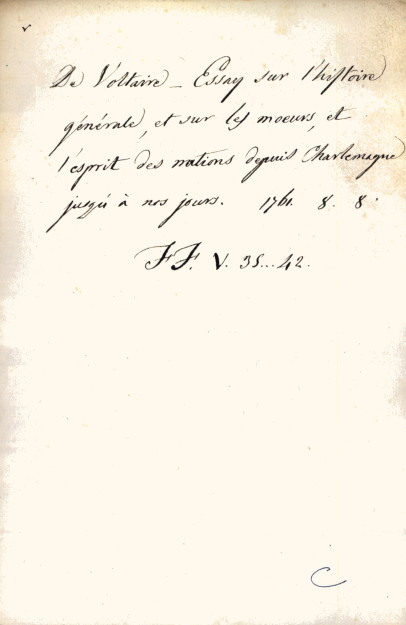 De Voltaire _ Essay sur l'histoire
générale, et sur les moeurs, et
l'esprit des nations depuis Charlemagne
jusqu'à nos jours. 1761. 8. 8.
FF. V. 35...42.
C